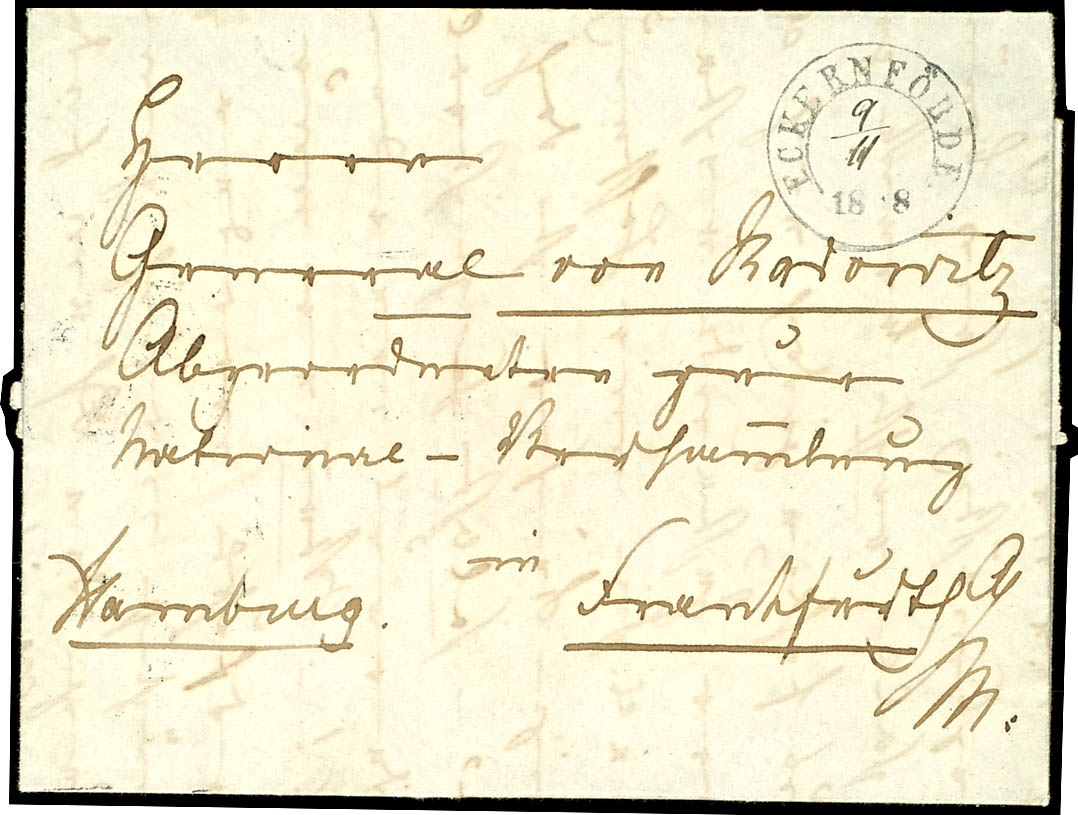 ECKERNFÖRDE
9/11
18 8
Herrn
General von Radowitz
Abgeordneten zur
National-Versammlung
in
Hamburg. Frankfurth a/
M.